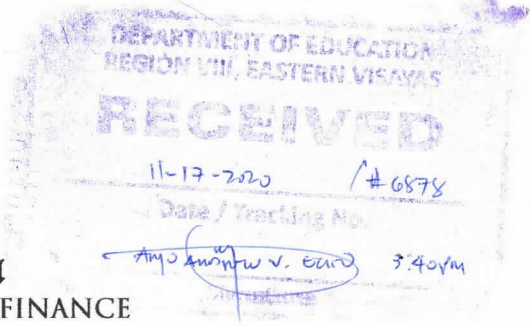 DEPARTMENT OF EDUCATION
REGION VIII, EASTERN VISAYAS
RECEIVED
11-17-2020 /#6878
Date / Tracking No.
V. 3:40PM
FINANCE